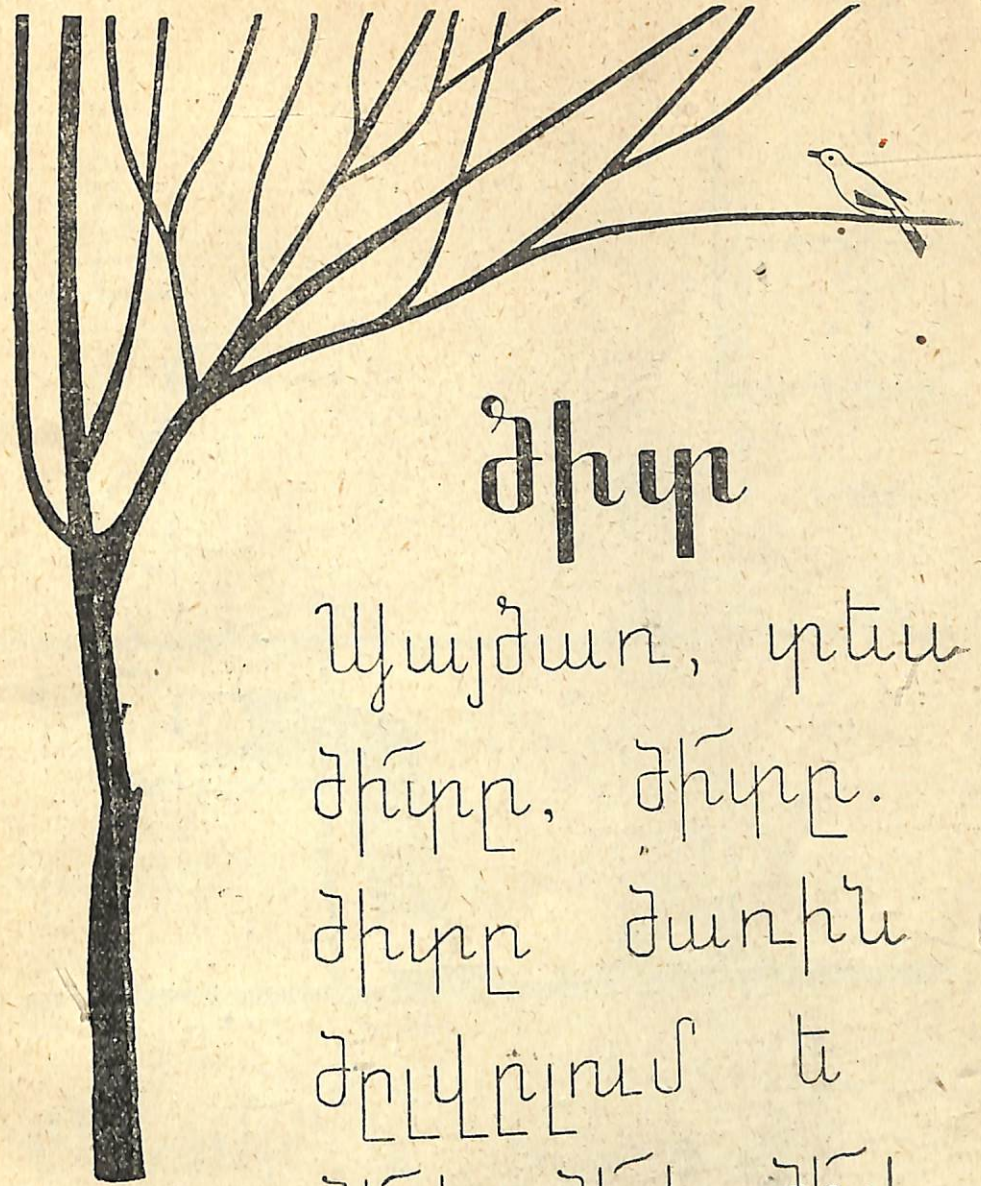 ծիտ
Պայծառ, տես
ծի՜տը, ծի՜տը.
ծիտը ծառին
ծըլվըլում ե